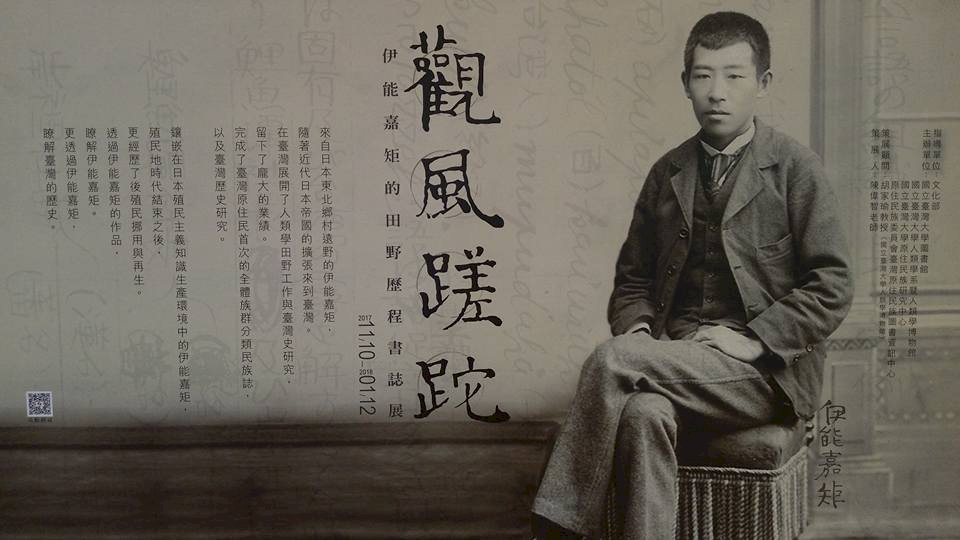 指導單位：文化部
主辦單位：國立臺灣大學圖書館
國立臺灣大學人類學系暨人類學博物館
國立臺灣大學原住民族研究中心
原住民族委員會臺灣原住民族圖書資訊中心
策展顧問：胡家瑜教授
策展人：陳偉智老師
伊能嘉矩
觀風蹉跎
伊能嘉矩的田野歷程書誌展
2017
11/10-
2018
01/12
來自日本東北鄉村遠野的伊能嘉矩，
隨著近代日本帝國的擴張來到臺灣。
在臺灣展開了人類學田野工作與臺灣史研究，
留下了龐大的業績。
完成了臺灣原住民首次的全體族群分類民族誌，
以及臺灣歷史研究。
鑲嵌在日本殖民主義知識生產環境中的伊能嘉矩，
殖民地時代結束之後，
更經歷了後殖民挪用與再生。
透過伊能嘉矩的作品，
瞭解伊能嘉矩。
更透過伊能嘉矩，
瞭解臺灣的歷史。